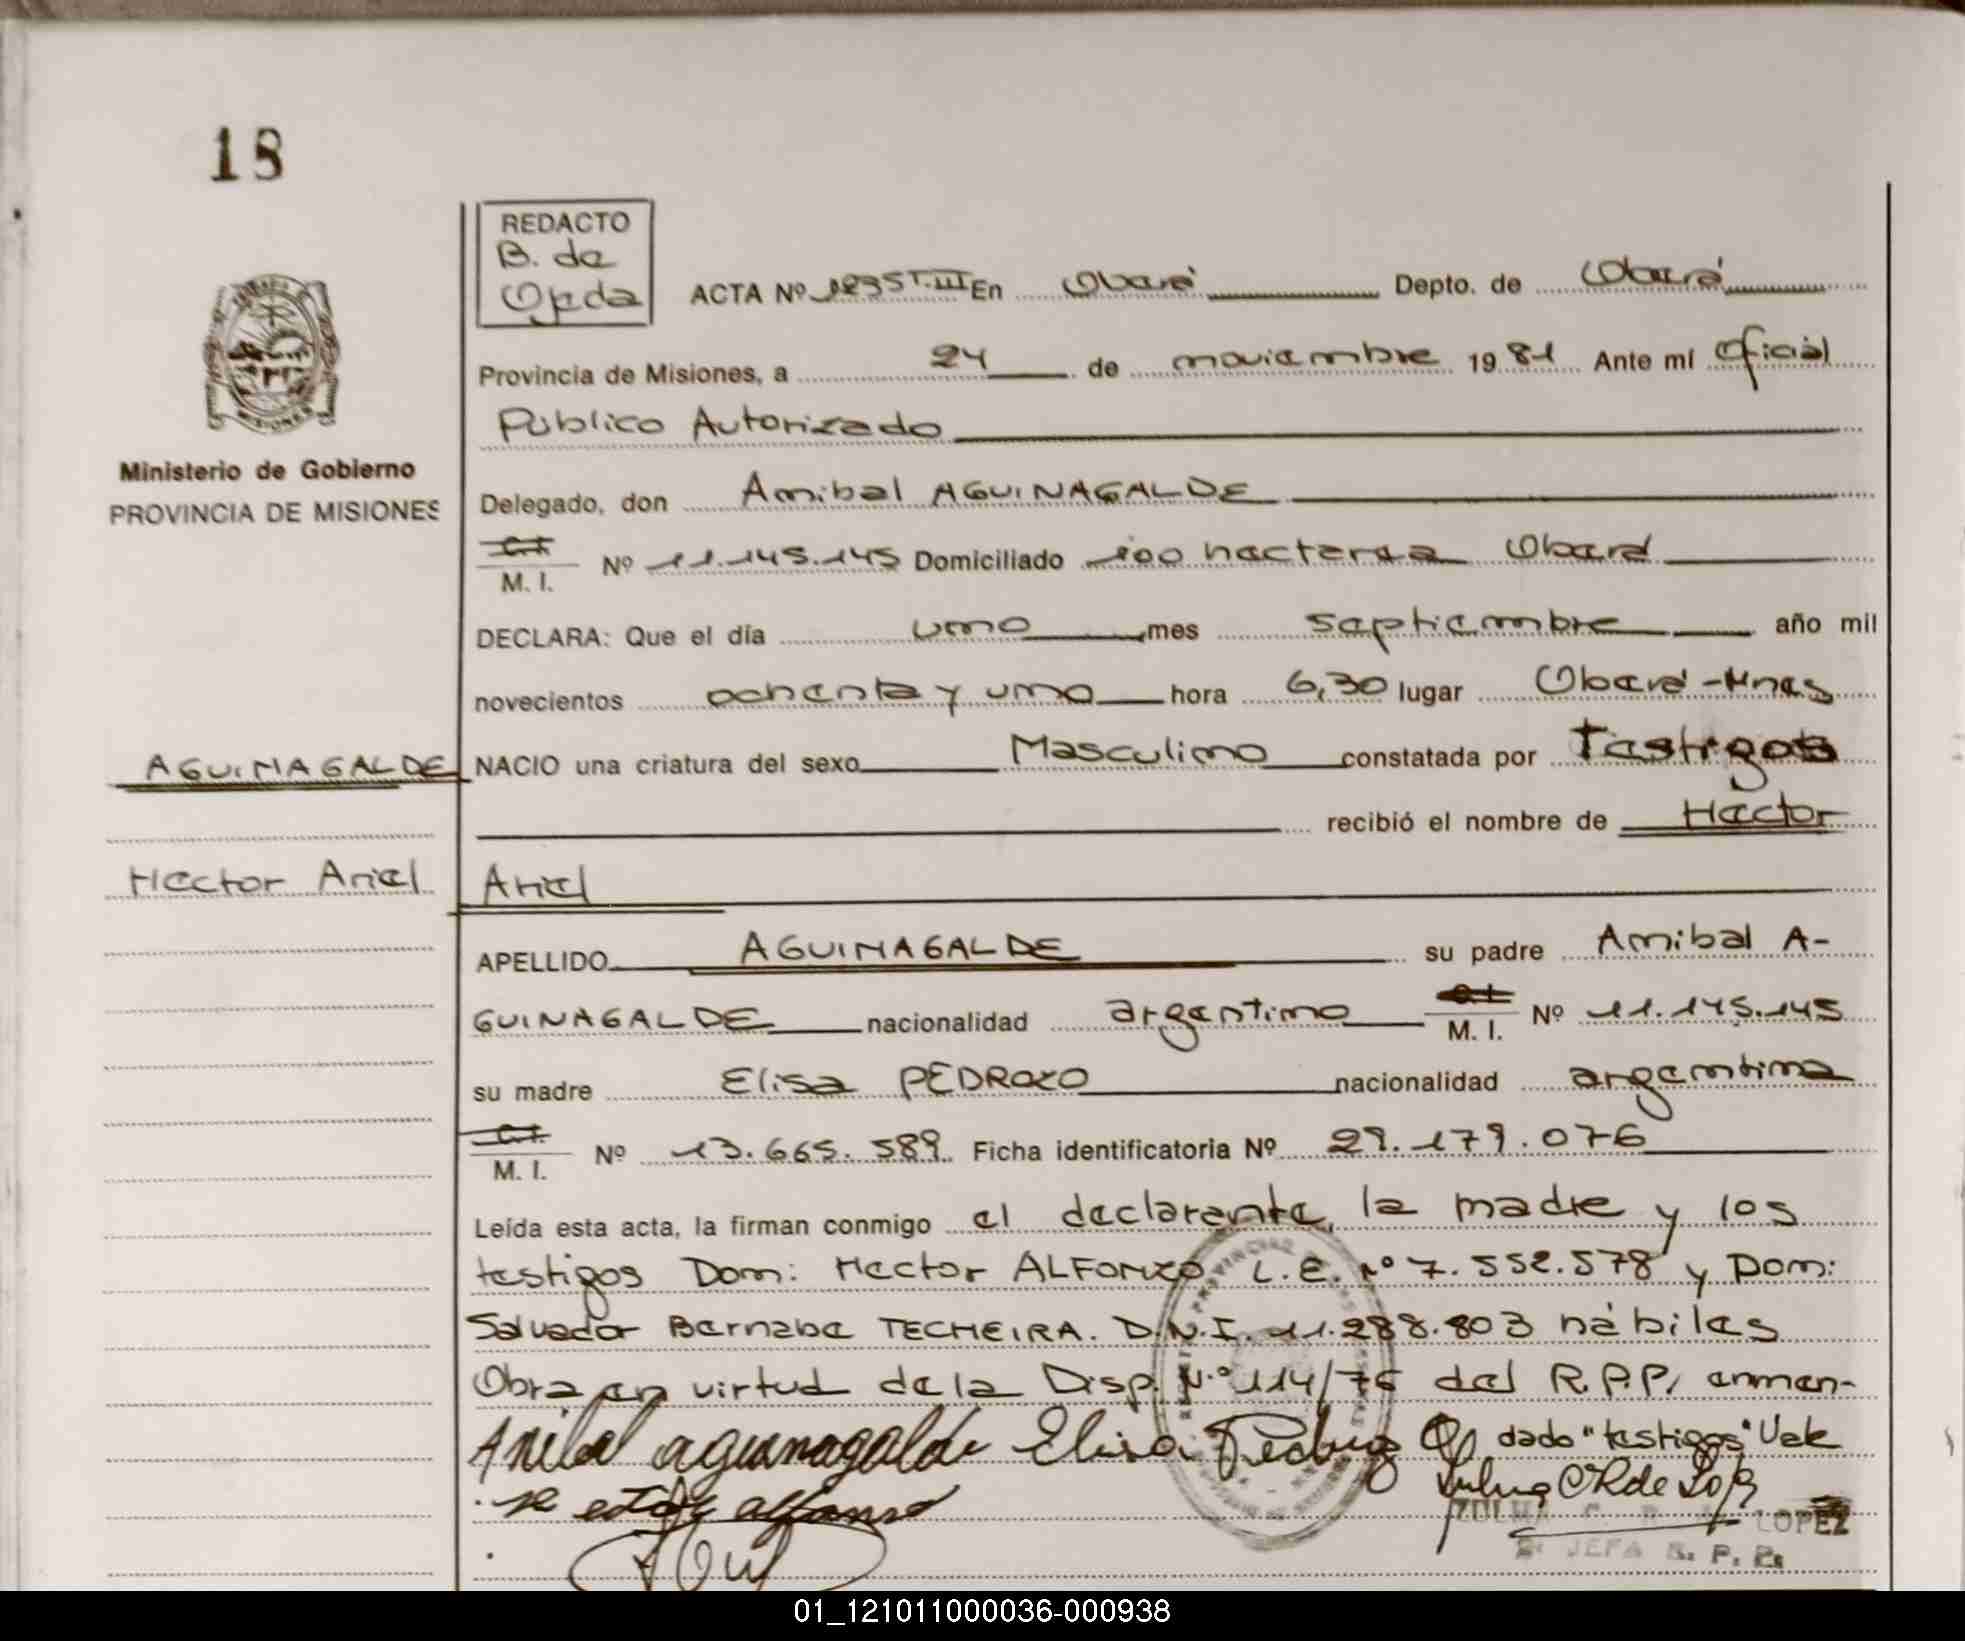 18
REDACTO
B. de
Ojeda
ACTA Nº 1235 T-III En Oberá Depto. de Oberá
Provincia de Misiones, a 24 de noviembre 1981 Ante mí Oficial
Público Autorizado
Ministerio de Gobierno
PROVINCIA DE MISIONES
Delegado, don Anibal AGUINAGALDE
C.I.
M. I. Nº 11.145.145 Domiciliado 100 hectareas Oberá
DECLARA: Que el día uno mes septiembre año mil
novecientos ochenta y uno hora 6,30 lugar Oberá-Mnes
AGUINAGALDE
NACIO una criatura del sexo Masculino constatada por Testigos
recibió el nombre de Hector
Hector Ariel
Ariel
APELLIDO AGUINAGALDE su padre Anibal A-
GUINAGALDE nacionalidad argentino C.I. M. I. Nº 11.145.145
su madre Elisa PEDROZO nacionalidad argentina
C.I.
M. I. Nº 13.665.589 Ficha identificatoria Nº 29.179.076
Leída esta acta, la firman conmigo el declarante, la madre y los
testigos Don: Hector ALFONZO L.E. Nº 7.552.578 y Don:
Salvador Bernabe TECHEIRA. D.N.I. 11.288.803 hábiles
Obra en virtud de la Disp. N.º 114/76 del R.P.P, enmen-
dado "testigos" Vale
Anibal aguinagalde Elisa Pedrozo
alfonso
LOPEZ
JEFA R. P. P.
01_121011000036-000938